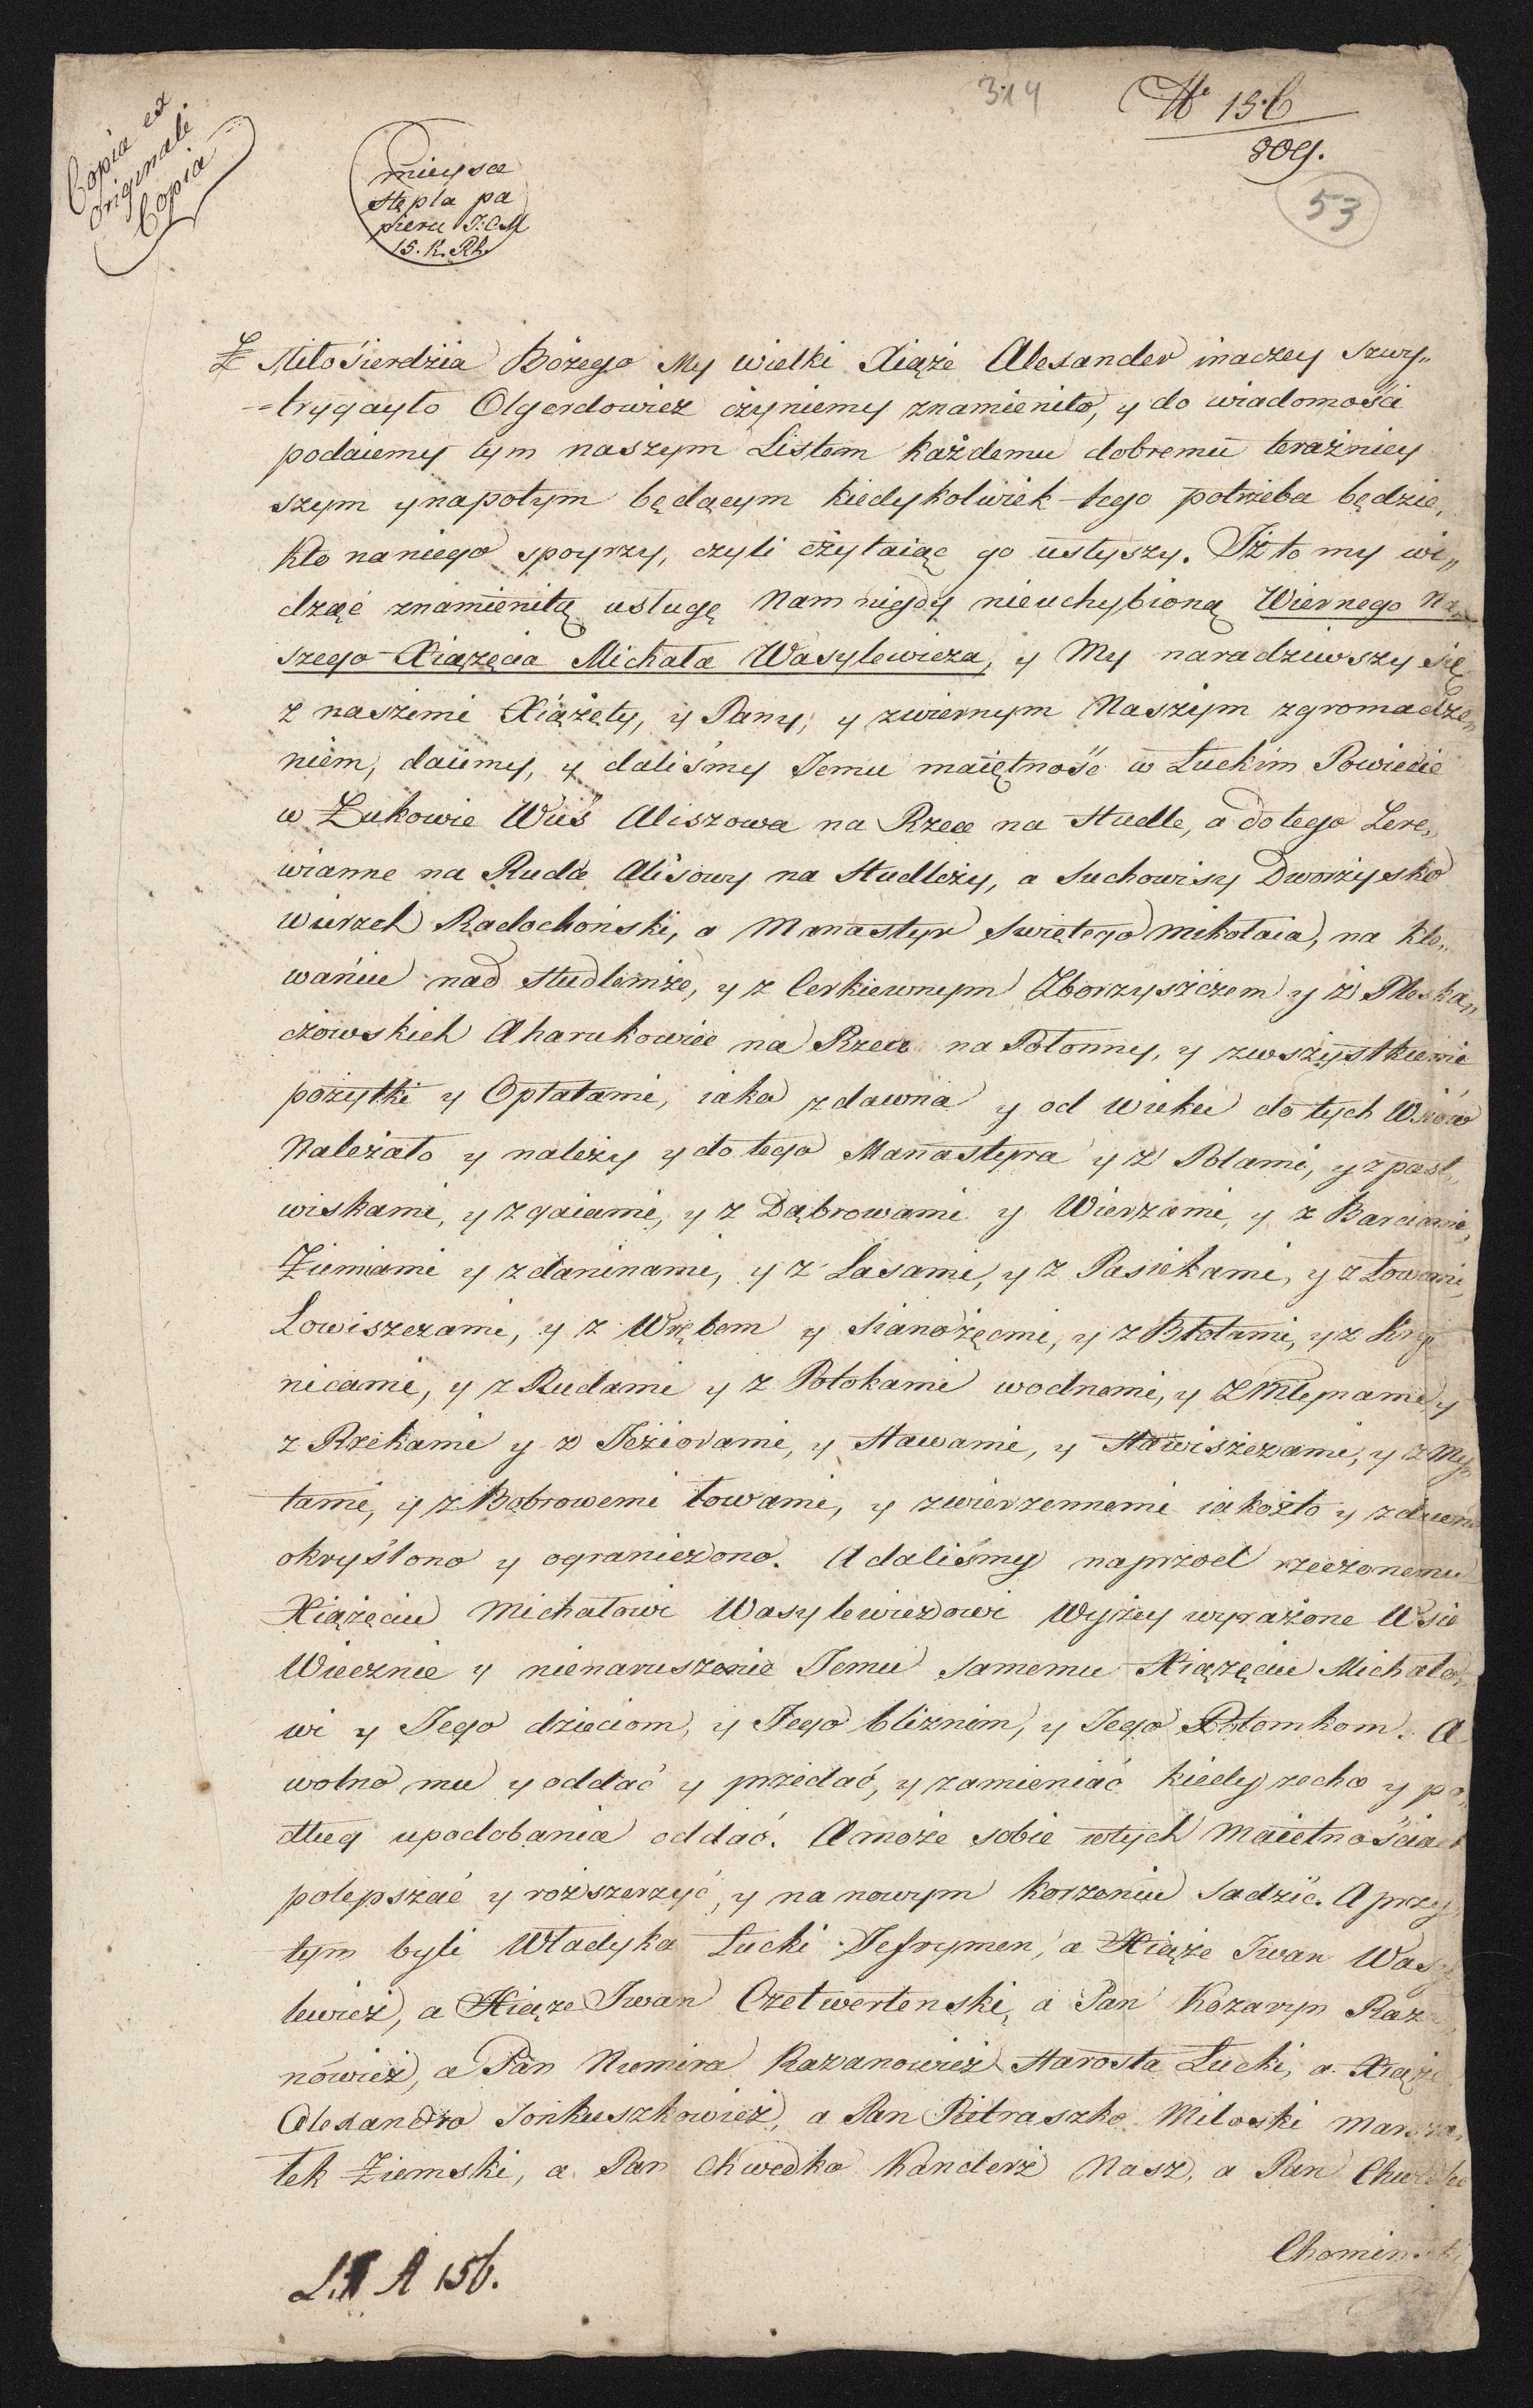 Copia ex
originali
Copia
mieysce
stępla pa
pieru J:C:M
15. K. Rh.
314
№ 156
809.
53
Z Miłosierdzia Bożego My wielki Xiąże Alexander inaczey Szwy„
=trygayło Olgerdowicz czyniemy znamienito, y do wiadomości
podaiemy tym naszym Listem każdemu dobremu teraźniey
szym y napotym będącym kiedykolwiek tego potrzeba będzie,
kto na niego spoyrzy, czyli czytaiąc go usłyszy. Iż to my wi„
dząć znamienitą usługę Nam nigdy nieuchybioną Wiernego Na„
szego Xiążęcia Michała Wasylewicza, y My naradziwszy się
z naszemi Xiążęty, y Pany, y zwiernym Naszym zgromadze„
niem, daiemy, y daliśmy Jemu maiętność w Łuckim Powiecie
w Żukowie Wieś Aliszowa na Rzece na Studle, a do tego Lere„
wianne na Ruda Alisowy na Studleży, a Suchowisy Dworzysko
wierzch Radochoński, a Manastyr Swiętego Mikołaia, na kle„
wańiu nad Studlemże, y z Cerkiewnym Zborzyszczem y z Pleskan„
czowskich Aharukowice na Rzece na Połonny, y zwszystkiemi
pożytki y Opłatami, iako zdawna y od wieku do tych Wsiów
Należało y należy y do tego Manastyra y z Polami, y z past„
wiskami, y z gaiami, y z Dąbrowami y Wierzami, y z Barciami,
Ziemiami y z daninami, y z Lasami, y z Pasiekami, y z Łowami,
Lowiszczami, y z Wrębem y Sianożęcmi, y z Błotami, y z kry
nicami, y z Rudami y z Potokami wodnemi, y z Młynami y
z Rzekami y z Jeziorami, y Stawami, y Stawiszczami, y z My„
tami, y z Bobrowemi łowami, y zwierzennemi iakożto y zdawna
okryślono y ograniczono. A daliśmy naprzod rzeczonemu
Xiążęciu Michałowi Wasylewiczowi Wyżey wyrażone Wsie
Wiecznie y nienaruszenie Jemu samemu Xiążęciu Michało„
wi y Jego dzieciom, y Jego bliznim, y Jego Potomkom. A
wolno mu y oddać y przedać, y zamieniać kiedy zechce y po„
dług upodobania oddać. A może sobie wtych Maiętnościach
polepszać y rozszerzyć, y na nowym korzeniu sadzić. A przy
tym byli Władyka Łucki Jefrymen, a Xiąże Iwan Wasy
lewicz, a Xiąze Iwan Czetwertenski, a Pan Kozaryn Raza
nowicz, a Pan Numira Razanowicz Starosta Łucki, a Xiąże
Alexandro Sonkuszkowicz, a Pan Pitraszko Miloski Marsza„
łek Ziemski, a Pan Chwedko Kanclerz Nasz, a Pan Chwedko
Chominski
L: A 156.